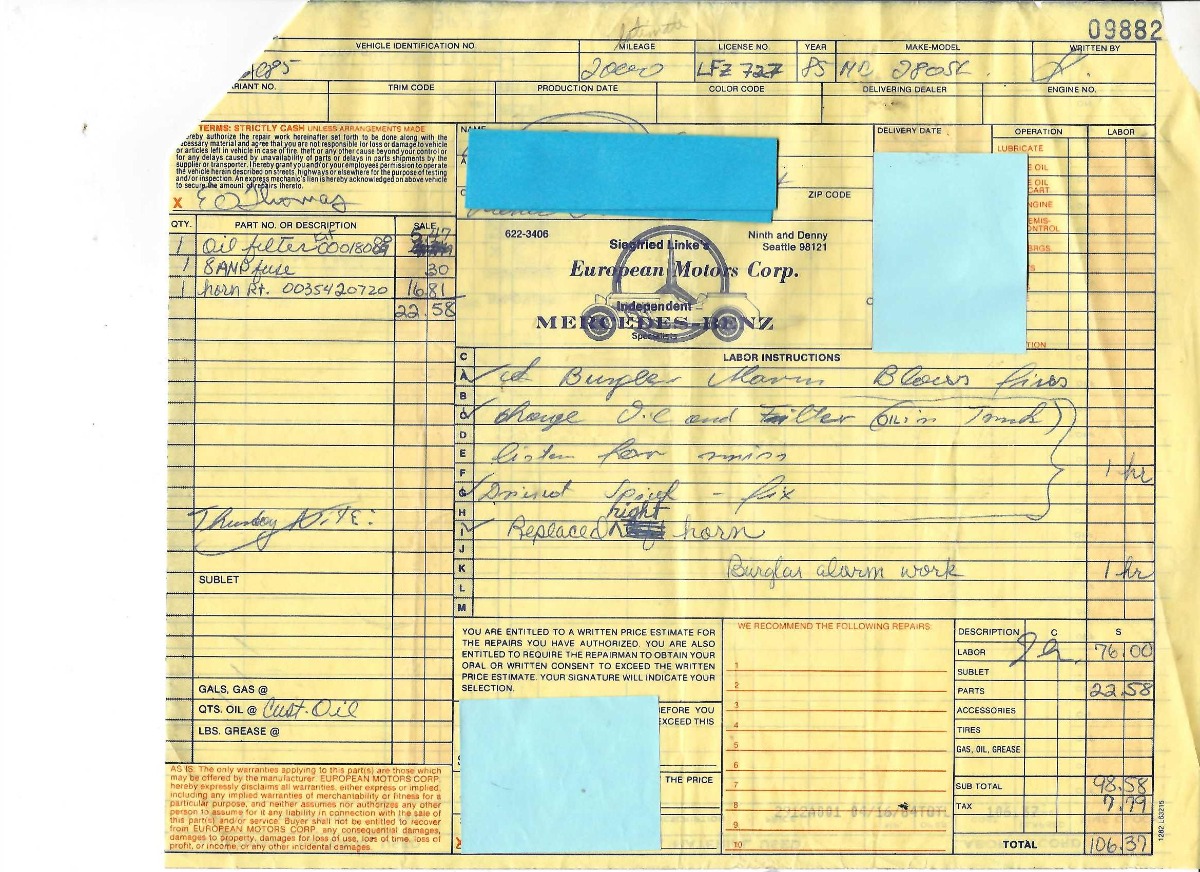 09882
VEHICLE IDENTIFICATION NO. MILEAGE LICENSE NO. YEAR MAKE-MODEL WRITTEN BY
LFZ 727 85 280SL
TRIM CODE PRODUCTION DATE COLOR CODE DELIVERING DEALER ENGINE NO.
TERMS: STRICTLY CASH UNLESS ARRANGEMENTS MADE
authorize the repair work hereinafter set forth to be done along with the
necessary material and agree that you are not responsible for loss or damage to vehicle
or articles left in vehicle in case of fire, theft or any other cause beyond your control or
for any delays caused by unavailability of parts or delays in parts shipments by the
supplier or transporter. I hereby grant you and/or your employees permission to operate
the vehicle herein described on streets, highways or elsewhere for the purpose of testing
and/or inspection. An express mechanic's lien is hereby acknowledged on above vehicle
to secure the amount of repairs thereto.
X E O Thomas
NAME
ZIP CODE
DELIVERY DATE
OPERATION LABOR
LUBRICATE
QTY. PART NO. OR DESCRIPTION SALE
1 Oil filter
1 8 AMP fuse .30
1 horn Rt. 0035420720 16.81
22.58
622-3406
Ninth and Denny
Seattle 98121
Siegfried Linke's
European Motors Corp.
Independent
MERCEDES-BENZ
Specialists
LABOR INSTRUCTIONS
C
A Burglar Alarm Blows fuses
B
C Change Oil and Filter (OIL in Trunk)
D
E listen for miss
F 1 hr
G - fix
H right
I Replaced horn
J
K Burglar alarm work 1 hr
L
M
SUBLET
GALS, GAS @
QTS. OIL @ Cust. Oil
LBS. GREASE @
AS IS: The only warranties applying to this part(s) are those which
may be offered by the manufacturer. EUROPEAN MOTORS CORP.
hereby expressly disclaims all warranties, either express or implied,
including any implied warranties of merchantability or fitness for a
particular purpose, and neither assumes nor authorizes any other
person to assume for it any liability in connection with the sale of
this part(s) and/or service. Buyer shall not be entitled to recover
from EUROPEAN MOTORS CORP. any consequential damages,
damages to property, damages for loss of use, loss of time, loss of
profit, or income, or any other incidental damages.
YOU ARE ENTITLED TO A WRITTEN PRICE ESTIMATE FOR
THE REPAIRS YOU HAVE AUTHORIZED. YOU ARE ALSO
ENTITLED TO REQUIRE THE REPAIRMAN TO OBTAIN YOUR
ORAL OR WRITTEN CONSENT TO EXCEED THE WRITTEN
PRICE ESTIMATE. YOUR SIGNATURE WILL INDICATE YOUR
SELECTION.
BEFORE YOU
EXCEED THIS
THE PRICE
WE RECOMMEND THE FOLLOWING REPAIRS:
1
2
3
4
5
6
7
8
9
10
DESCRIPTION C S
LABOR 76.00
SUBLET
PARTS 22.58
ACCESSORIES
TIRES
GAS, OIL, GREASE
SUB TOTAL 98.58
TAX 7.79
TOTAL 106.37